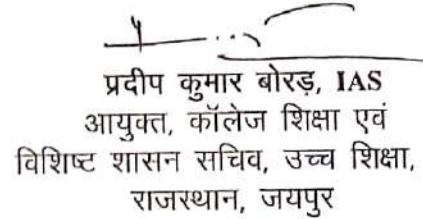 प्रदीप कुमार बोरड़, IAS
आयुक्त, कॉलेज शिक्षा एवं
विशिष्ट शासन सचिव, उच्च शिक्षा,
राजस्थान, जयपुर